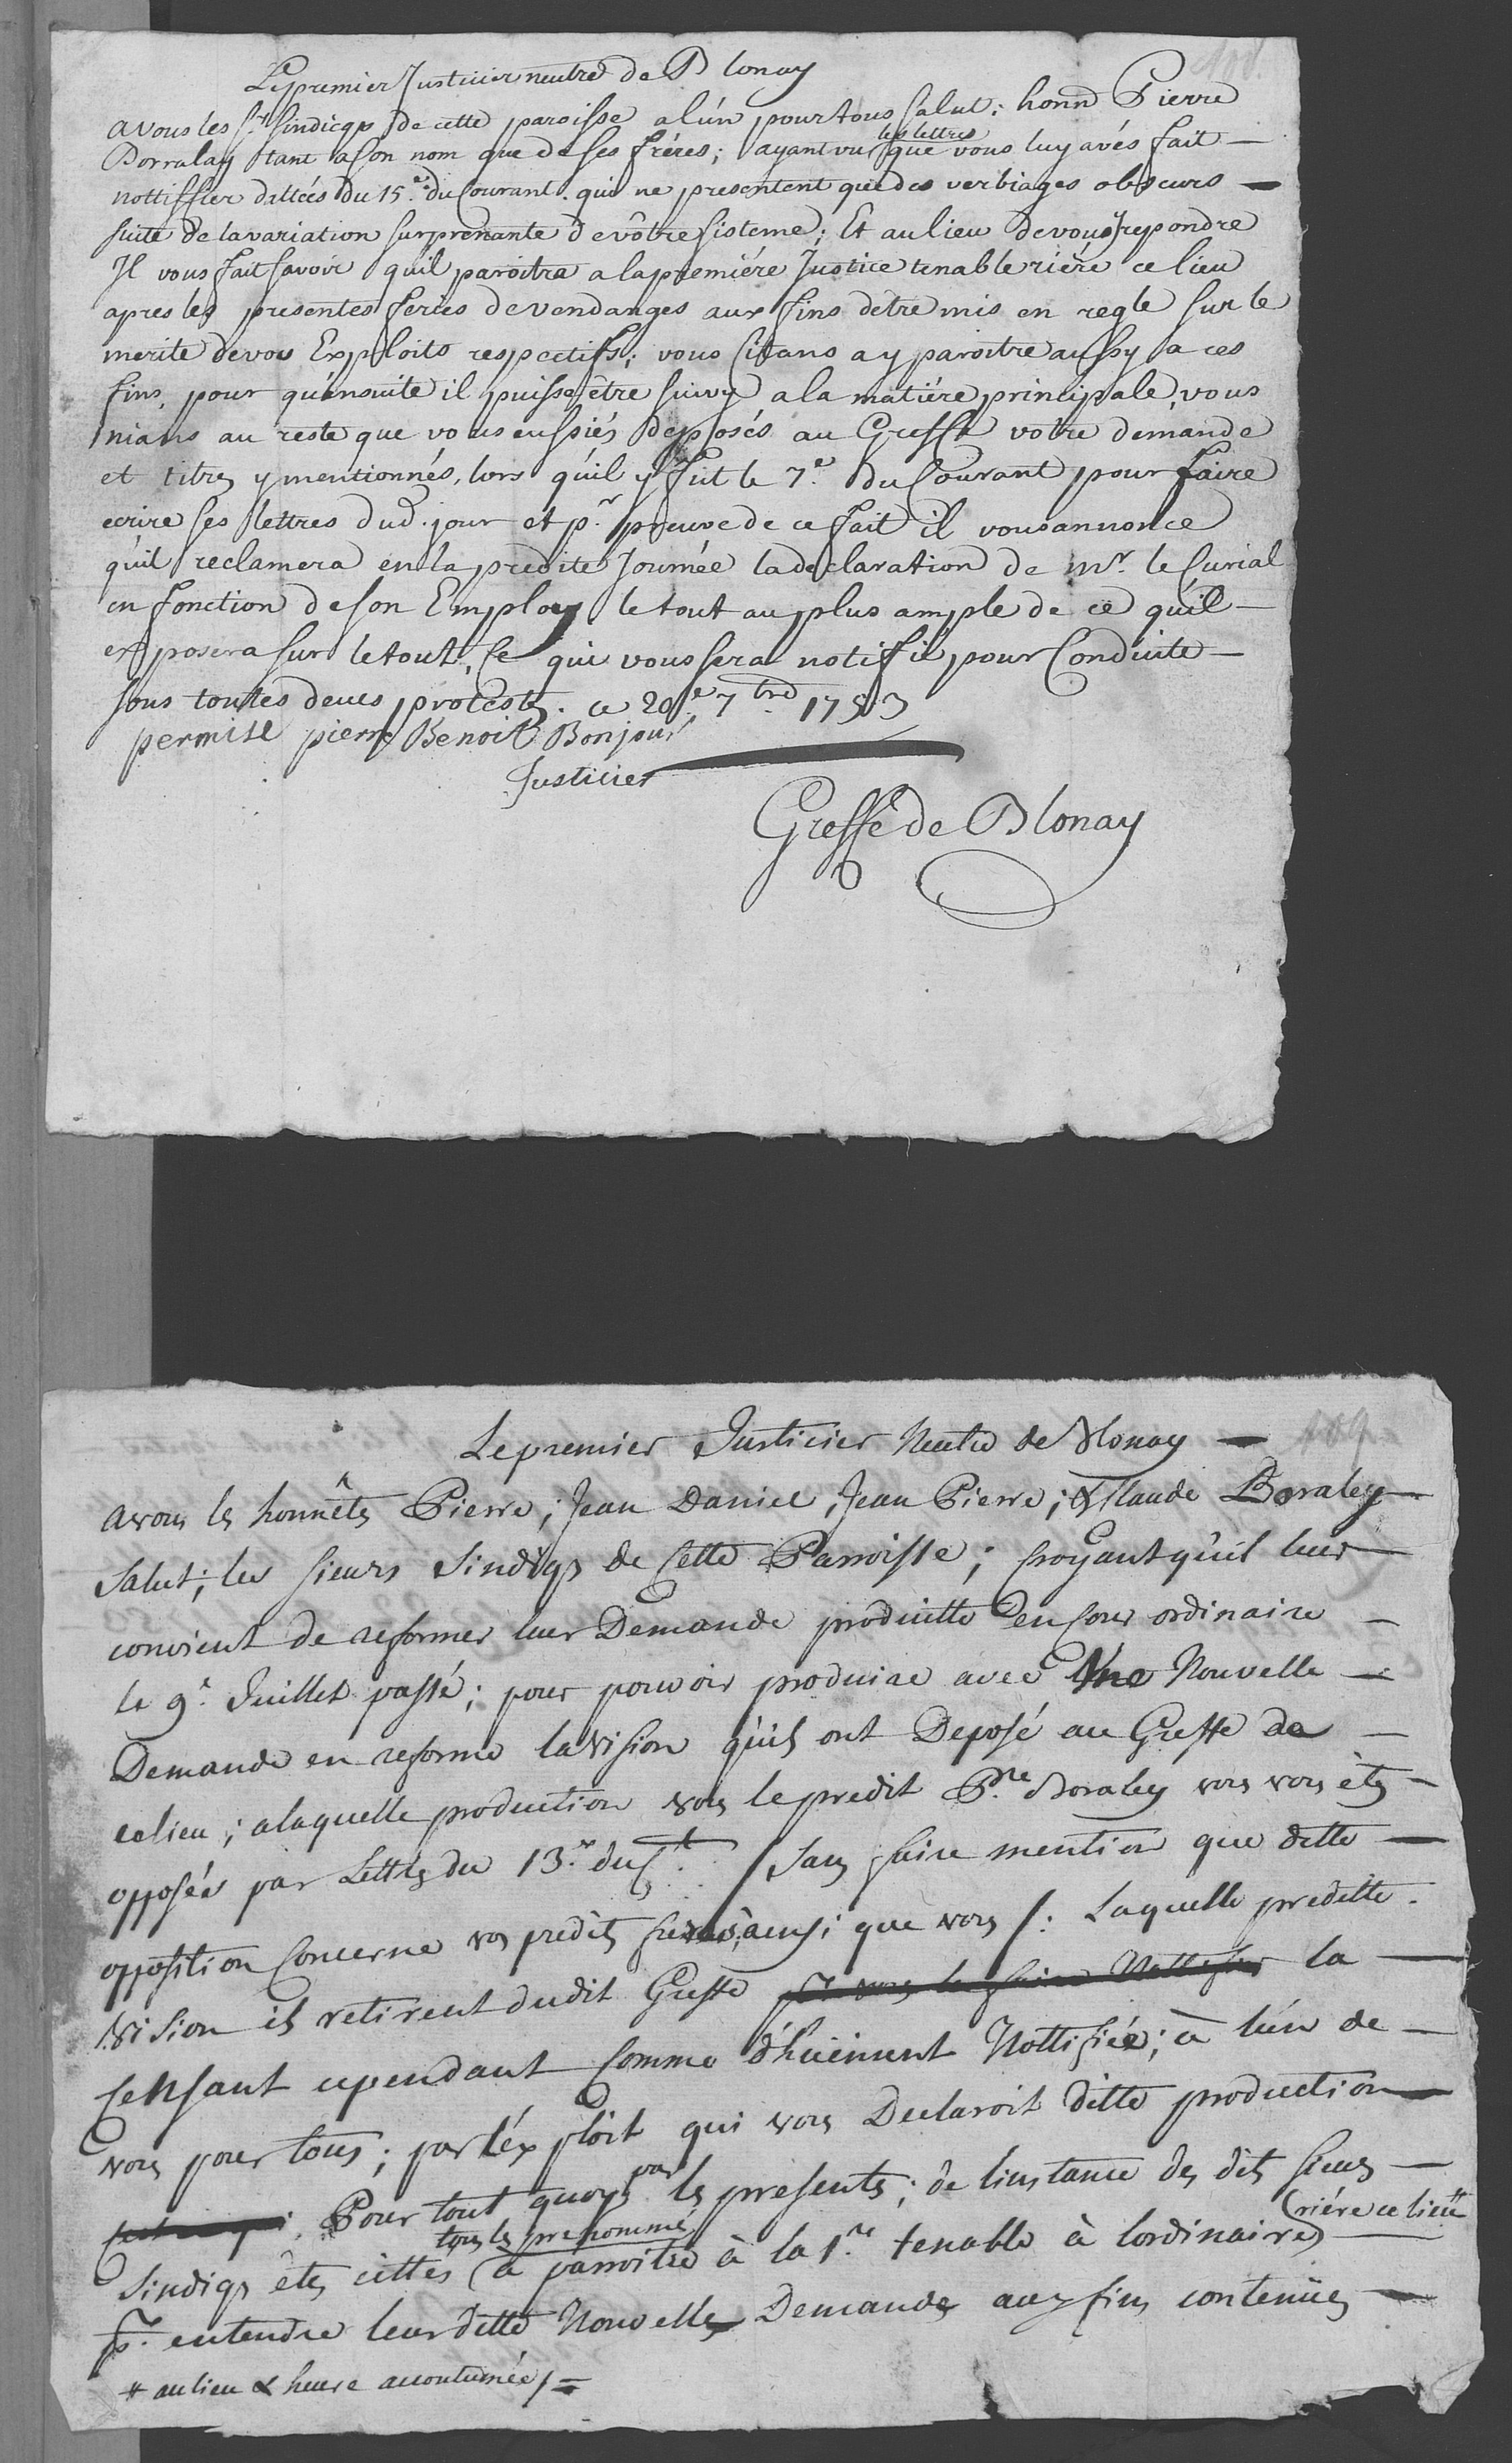 108.
Le premier Justicier neutre de Blonay
a vous les Srs Sindicqs de cette paroisse a lún pour tous salut; honn Pierre
Borralay tant a son nom que de ses fréres; ayant vu les lettres que vous luy avés fait —
nottiffier dattées du 15.e du Courant. qui ne presentent que des verbiages obscurs —
suite de la variation surprenante de vôtre sisteme; Et au lieu de vous y repondre
Il vous fait savoir quil paroitra a la premiére Justice tenable riére ce lieu
apres les presentes feries de vendanges aux fins détre mis en regle sur le
merite de vos Exploits respectifs; vous Citans a y paroitre aussy a ces
fins, pour quénsuite il puisse être suivy a la matiére principale, vous
nians au reste que vous eussiés deposés au Greffe votre demande
et titres y mentionnés, lors qúil y fut le 7.e du Courant pour faire
ecrire ses lettres dud. jour et p.r preuve de ce fait il vous annonce
qúil reclamera en la predite Journée la declaration de Mr. le Curial
en fonction de son Employ le tout au plus ample de ce qúil —
exposera sur le tout, Ce qui vous sera notifié pour Conduite —
sous toutes deues protestes. ce 20.e 7bre 1753
permise pierre Benoit Bonjour
Justicier
Greffe de Blonay
109
Le premier Justicier Neutre de Blonay —
a vous les honnêtes Pierre; Jean Daniel; Jean Pierre; & Claude Boraley
Salut; les sieurs Sindiqs de Cette Parroisse; croyant qúil leur
convient de reformer leur Demande produitte en Cour ordinaire —
le 9.e Juillet passé; pour pouvoir produire avec Une Nouvelle —
Demande en reforme la Vision qúils ont Deposé au Greffe de —
ce lieu; a laquelle production vous le predit P.re Boraley vous vous êtes —
opposés par Lettres du 13.e du C.t /: Sans faire mention que ditte —
opposition Concerne vos predits freres, ainsi que vous /: Laquelle preditte.
Vision ils retirent dudit Greffe pr vous la faire Nottifier la —
Censant cependant Comme dhüement Nottifiée; à lún de —
vous pour tous; par léxploit qui vous Declaroit ditte production —
. Pour tout quoy par les presentes; de linstance des dits sieurs —
Sindiqs êtes cittés tous les prenommés (a parroitre à la 1.re tenable à lordinaire) (riére ce lieu #
p.r entendre leur ditte Nouvelle Demande aux fins contenües —
# au lieu & heure accoutumée / =